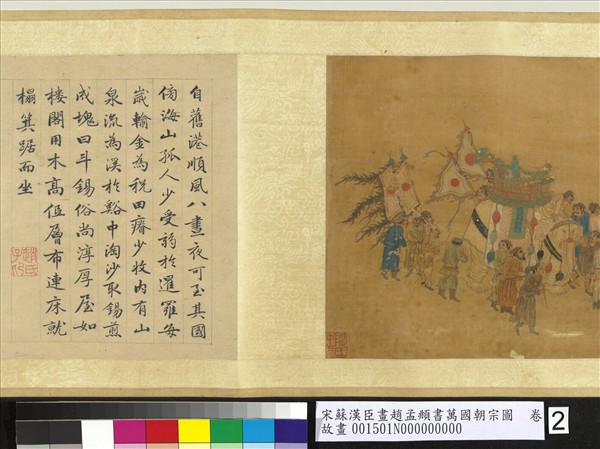 自舊港順風八晝夜可至其國
傍海山孤人少受約於暹羅每
歲輸金為稅田瘠少收內有山
泉流為溪於谿中淘沙取錫煎
成塊曰斗錫俗尚淳厚屋如
樓閣用木高低層布連床就
榻箕踞而坐
趙氏子昂
宋蘇漢臣畫趙孟頫書萬國朝宗圖 卷 2
故畫 001501N000000000